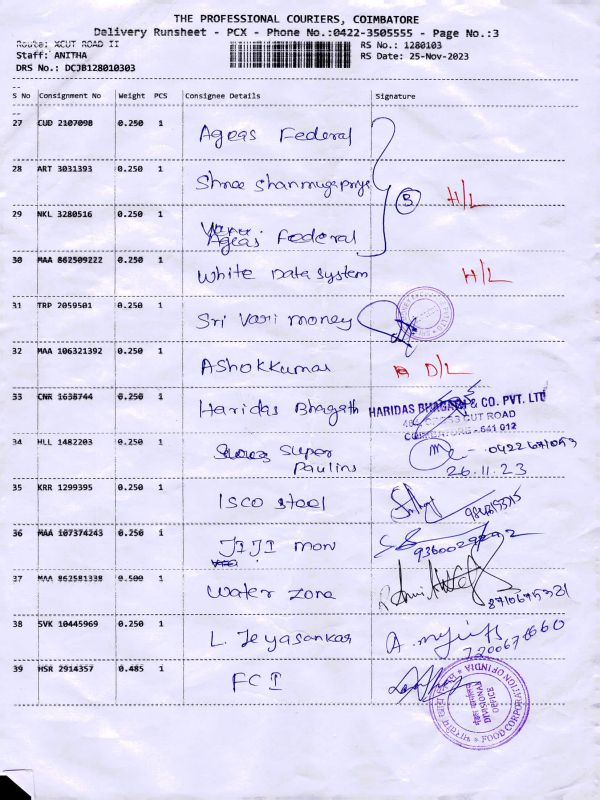 THE PROFESSIONAL COURIERS, COIMBATORE
Delivery Runsheet - PCX - Phone No.:0422-3505555 - Page No.:3
Route: XCUT ROAD II
RS No.: 1280103
Staff: ANITHA
RS Date: 25-Nov-2023
DRS No.: DCJB128010303
S No Consignment No Weight PCS Consignee Details Signature
27 CUD 2107098 0.250 1 Ageas Federal
28 ART 3031393 0.250 1 Shree Shanmugapriya
3 H/L
29 NKL 3280516 0.250 1
Ageas Federal
30 MAA 862509222 0.250 1 White Data System H/L
31 TRP 2059501 0.250 1 Sri Vari money
32 MAA 106321392 0.250 1 AShokkumar D/L
33 CNR 1638744 0.250 1 Haridas Bhagath HARIDAS BHAGATH & CO. PVT. LTD
CUT ROAD
COIMBATORE - 641 012
34 HLL 1482203 0.250 1 Super
Paulins
26.11.23
35 KRR 1299395 0.250 1 ISCO Steel
36 MAA 107374243 0.250 1 JIJI mon
37 MAA 862581338 0.500 1 Water Zone
38 SVK 10445969 0.250 1 L. Jeyasankar
39 HSR 2914357 0.485 1 FCI
FOOD CORPORATION OF INDIA
DIVISIONAL
OFFICE